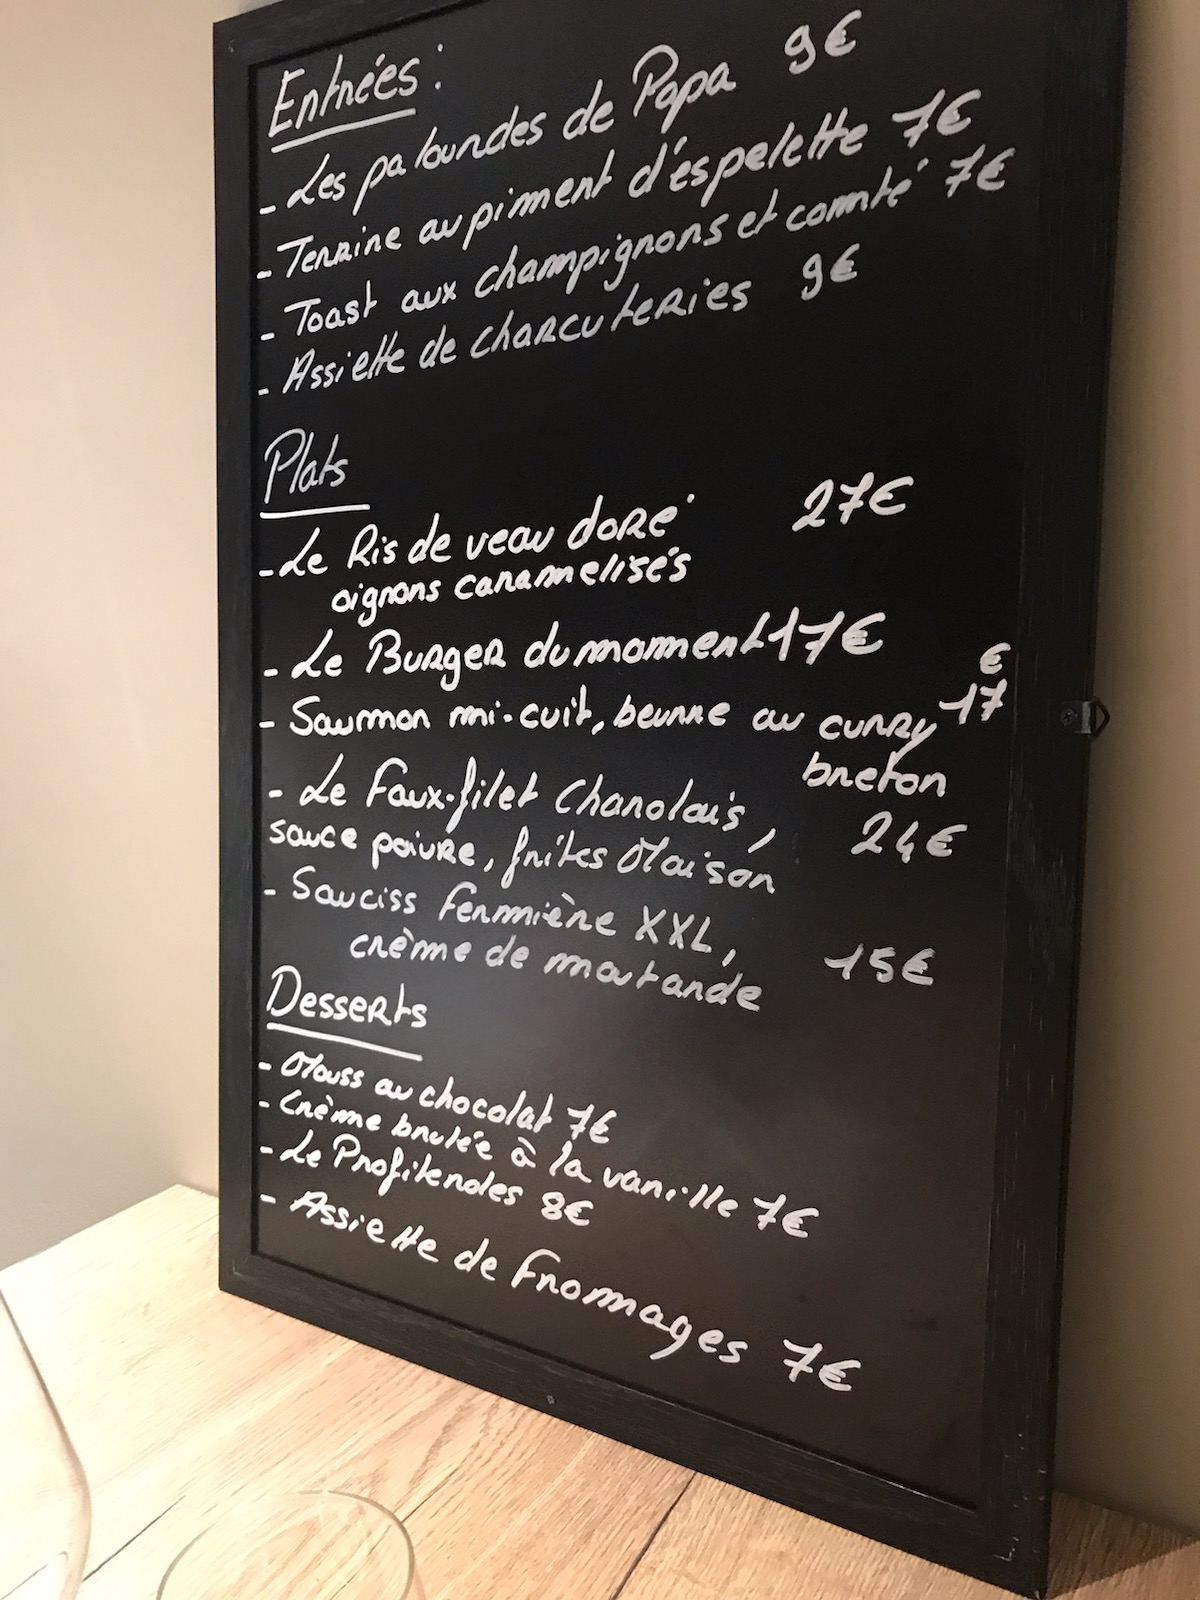 Entrées :
- Les palourdes de Papa 9€
- Terrine au piment d'éspelette 7€
- Toast aux champignons et comté 7€
- Assiette de charcuteries 9€
Plats
- Le Ris de veau doré 27€
oignons caramelisés
- Le Burger du moment 17€
- Saumon mi-cuit, beurre au curry 17€
breton
- Le Faux-filet Charolais, 24€
sauce poivre, frites Maison
- Sauciss fermière XXL,
crème de moutarde 15€
Desserts
- Mouss au chocolat 7€
- Crème brulée à la vanille 7€
- Le Profiteroles 8€
- Assiette de Fromages 7€